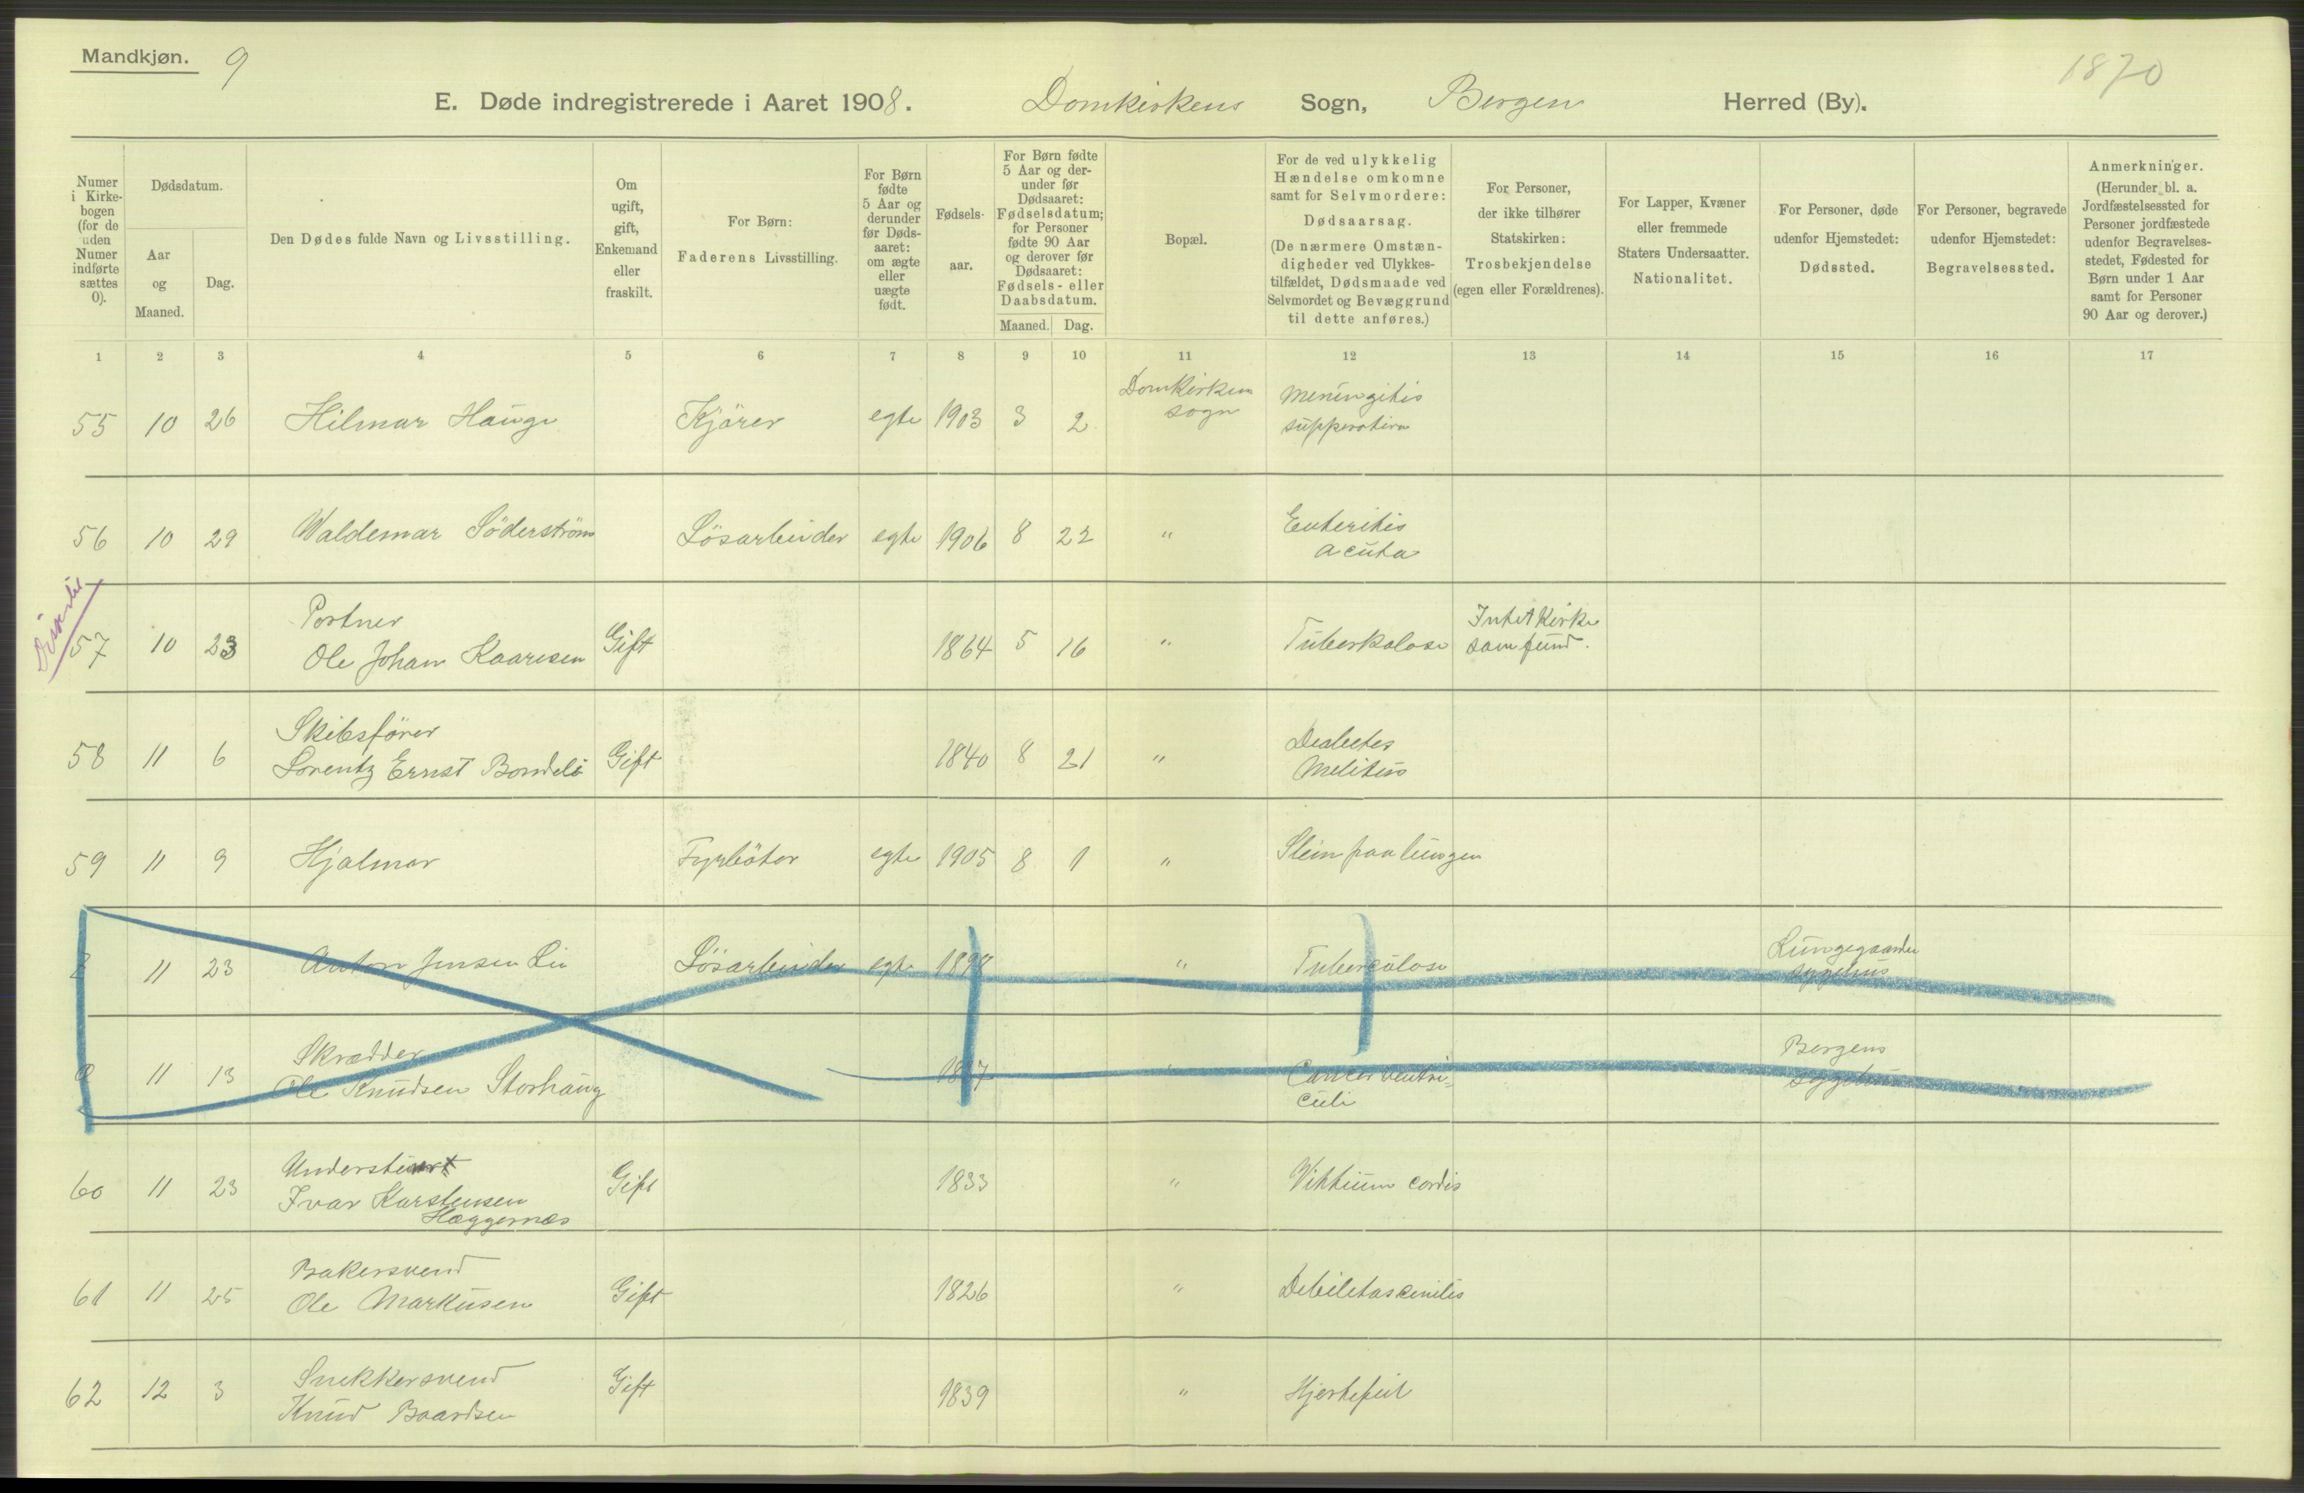 Mandkjøn. 9
1870
E. Døde indregistrerede i Aaret 1908. Domkirkens Sogn, Bergen Herred (By).
Numer i Kirkebogen (for de uden Numer indførte sættes 0).
Dødsdatum.
Aar og Maaned.
Dag.
Den Dødes fulde Navn og Livsstilling.
Om ugift, gift, Enkemand eller fraskilt.
For Børn: Faderens Livsstilling.
For Børn fødte 5 Aar og derunder før Dødsaaret: om ægte eller uægte født.
Fødselsaar.
For Børn fødte 5 Aar og derunder før Dødsaaret: Fødselsdatum; for Personer fødte 90 Aar og derover før Dødsaaret: Fødsels- eller Daabsdatum.
Maaned. Dag.
Bopæl.
For de ved ulykkelig Hændelse omkomne samt for Selvmordere: Dødsaarsag. (De nærmere Omstændigheder ved Ulykkestilfældet, Dødsmaade ved Selvmordet og Bevæggrund til dette anføres.)
For Personer, der ikke tilhører Statskirken: Trosbekjendelse (egen eller Forældrenes).
For Lapper, Kvæner eller fremmede Staters Undersaatter. Nationalitet.
For Personer, døde udenfor Hjemstedet: Dødssted.
For Personer, begravede udenfor Hjemstedet: Begravelsessted.
Anmerkninger. (Herunder bl. a. Jordfæstelsessted for Personer jordfæstede udenfor Begravelsesstedet, Fødested for Børn under 1 Aar samt for Personer 90 Aar og derover.)
1 2 3 4 5 6 7 8 9 10 11 12 13 14 15 16 17
55 10 26 Hilmar Hauge Kjører egte 1903 3 2 Domkirkens sogn Meningitis suppurativa
56 10 29 Waldemar Söderström Løsarbeider egte 1906 8 22 " Enteritis acuta
57 10 23 Portner
Ole Johan Kaaresen Gift 1864 5 16 " Tuberkolose Intet Kirke samfund.
58 11 6 Skibsfører
Lorentz Ernst Bondeli Gift 1840 8 21 " Diabetes Melitus
59 11 9 Hjalmar Fyrbøter egte 1905 8 1 " Slem paa lungen
11 23 Anton Jensen Lie Løsarbeider egte 1898 " Tuberculose Lungegaarden sygehus
0 11 13 Skrædder
Ole Knudsen Storhaug Cancer ventriculi Bergens sygehus
60 11 23 Understuert
Ivar Karstensen
Hæggernæs Gift 1833 " Vittium cordis
61 11 25 Bakersvend
Ole Markusen Gift 1826 " Debilitas cenilis
62 12 3 Snekkersvend
Knud Baardsen Gift 1839 " Hjertefeil